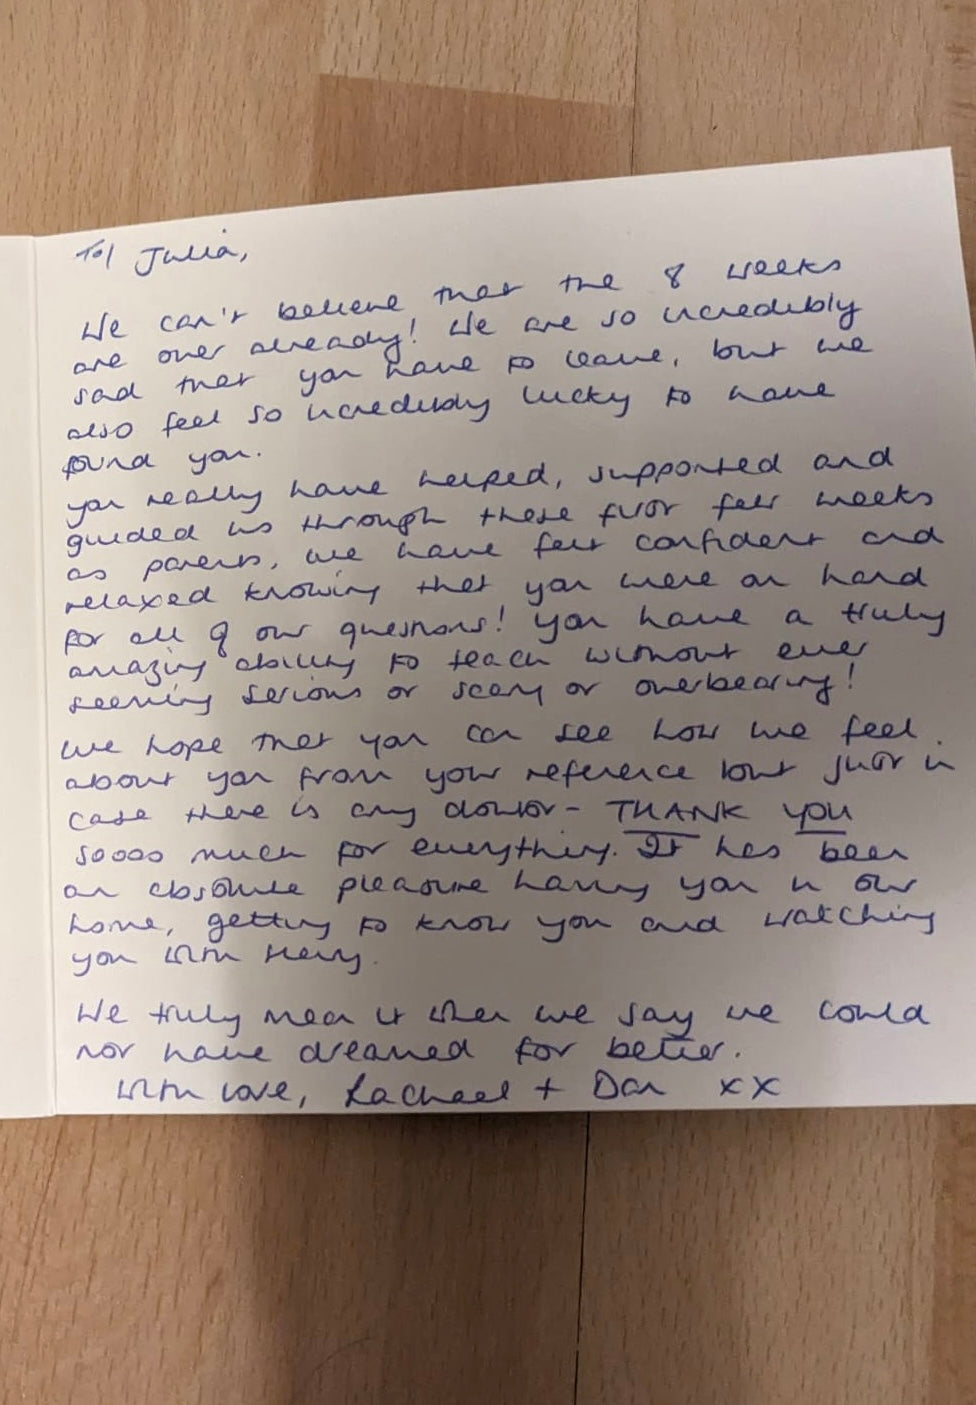 To/ Julia,
We can't believe that the 8 weeks
are over already! We are so incredibly
sad that you have to leave, but we
also feel so incredibly lucky to have
found you.
you really have helped, supported and
guided us through these first few weeks
as parents, we have felt confident and
relaxed knowing that you were on hand
for all of our questions! you have a truly
amazing ability to teach without ever
seeming serious or scary or overbearing!
we hope that you can see how we feel
about you from your reference but just in
case there is any doubt - THANK YOU
soooo much for everything. It has been
an absolute pleasure having you in our
home, getting to know you and watching
you with Henry.
We truly mean it when we say we could
not have dreamed for better.
With love, Rachael + Dan xx